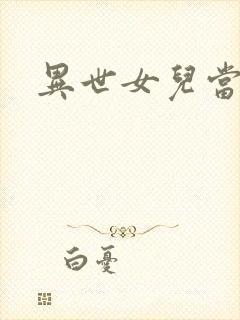 異世女兒當
白憂